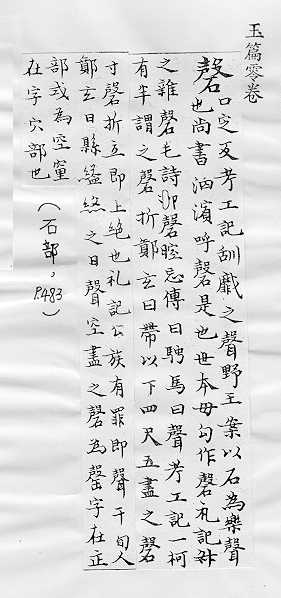 玉篇零卷
磬口定反考工記刮戲之聲野王案以石為樂聲
也尚書泗濱呼磬是也世本毋勾作磬礼記叔
之離磬毛詩抑磬控忌傳曰騁馬曰聲考工記一柯
有半謂之磬折鄭玄曰帶以下四尺五盡之磬
寸磬折立即上絶也礼記公族有罪即聲于旬人
鄭玄曰縣縊煞之曰聲空盡之磬為罄字在缶
部或為空窒
在字穴部也
(石部,P.483)